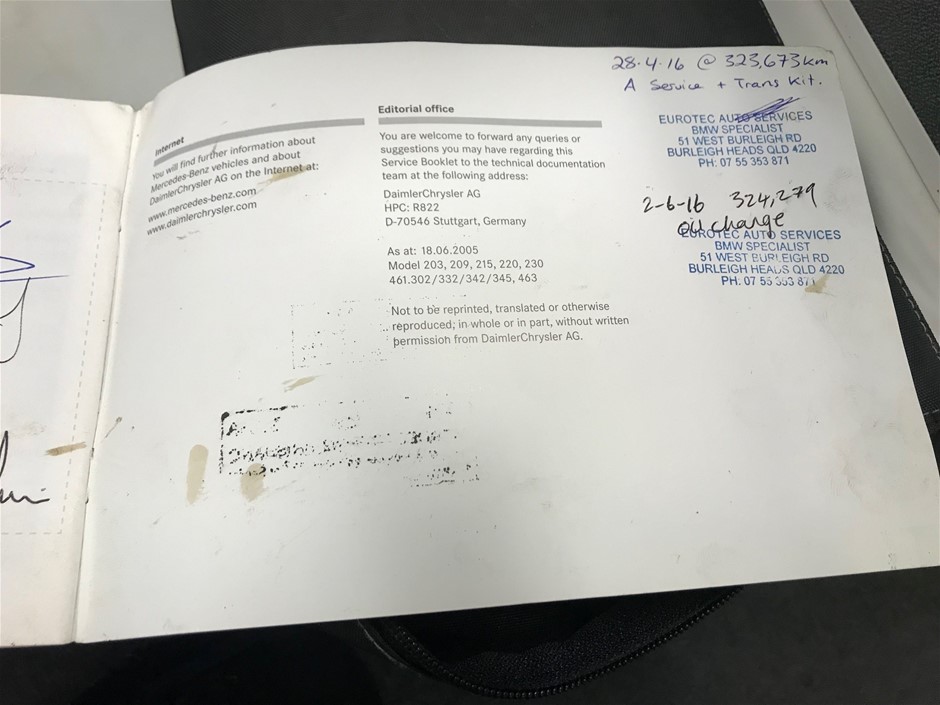 28.4.16 @ 323,673km
A Service + Trans Kit.
EUROTEC AUTO SERVICES
BMW SPECIALIST
51 WEST BURLEIGH RD
BURLEIGH HEADS QLD 4220
PH: 07 55 353 871
2-6-16 324,279
oil change
EUROTEC AUTO SERVICES
BMW SPECIALIST
51 WEST BURLEIGH RD
BURLEIGH HEADS QLD 4220
PH: 07 55 353 871
Internet
You will find further information about
Mercedes-Benz vehicles and about
DaimlerChrysler AG on the Internet at:
www.mercedes-benz.com
www.daimlerchrysler.com
Editorial office
You are welcome to forward any queries or
suggestions you may have regarding this
Service Booklet to the technical documentation
team at the following address:
DaimlerChrysler AG
HPC: R822
D-70546 Stuttgart, Germany
As at: 18.06.2005
Model 203, 209, 215, 220, 230
461.302/332/342/345, 463
Not to be reprinted, translated or otherwise
reproduced; in whole or in part, without written
permission from DaimlerChrysler AG.